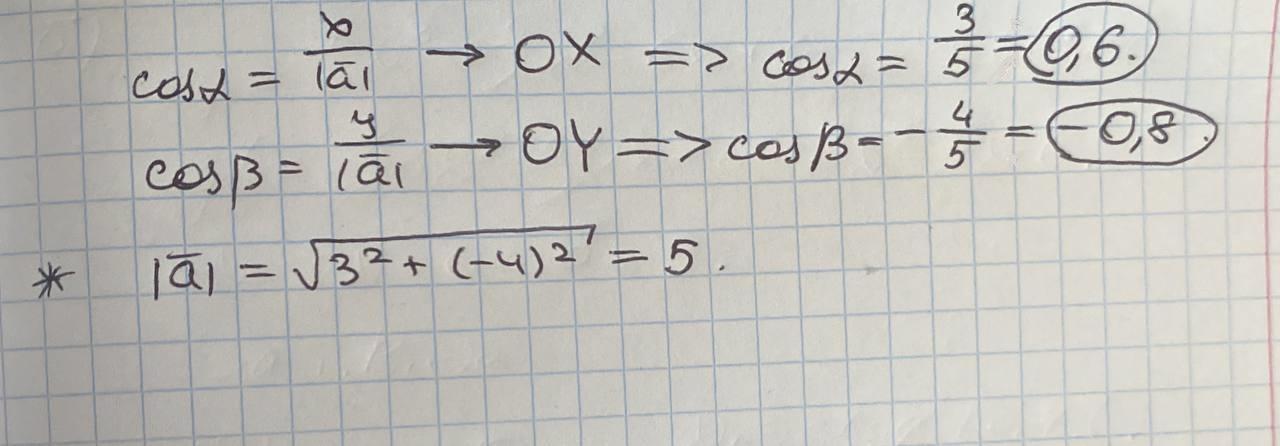 cosα = x/|a̅| → OX => cosα = 3/5 = 0,6.
cosβ = y/|a̅| → OY => cosβ = -4/5 = -0,8.
* |a̅| = √(3² + (-4)²) = 5.